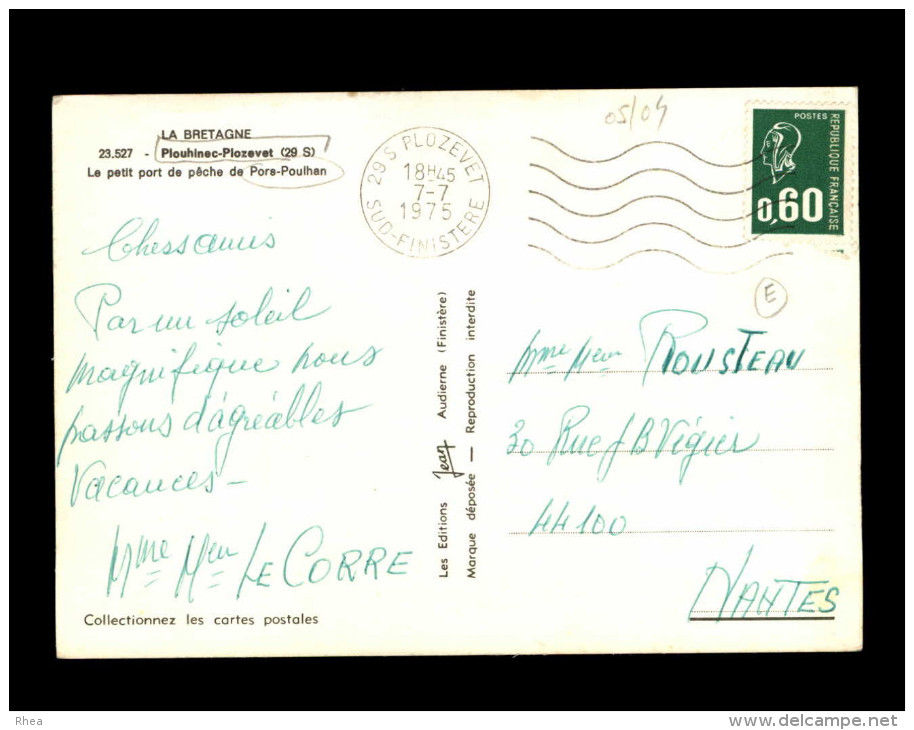 LA BRETAGNE
23.527 - Plouhinec-Plozevet (29 S)
Le petit port de pêche de Pors-Poulhan
Chers amis
Par un soleil
magnifique nous
passons d'agréables
Vacances -
Mme Meur LE CORRE
Collectionnez les cartes postales
29 S PLOZEVET
18H45
7-7
1975
SUD-FINISTERE
05/04
POSTES
REPUBLIQUE FRANÇAISE
0,60
E
Les Editions Jean Audierne (Finistère)
Marque déposée — Reproduction interdite
Mme Meur ROUSTEAU
30 Rue J B Vigier
44100
NANTES
Rhea
www.delcampe.net